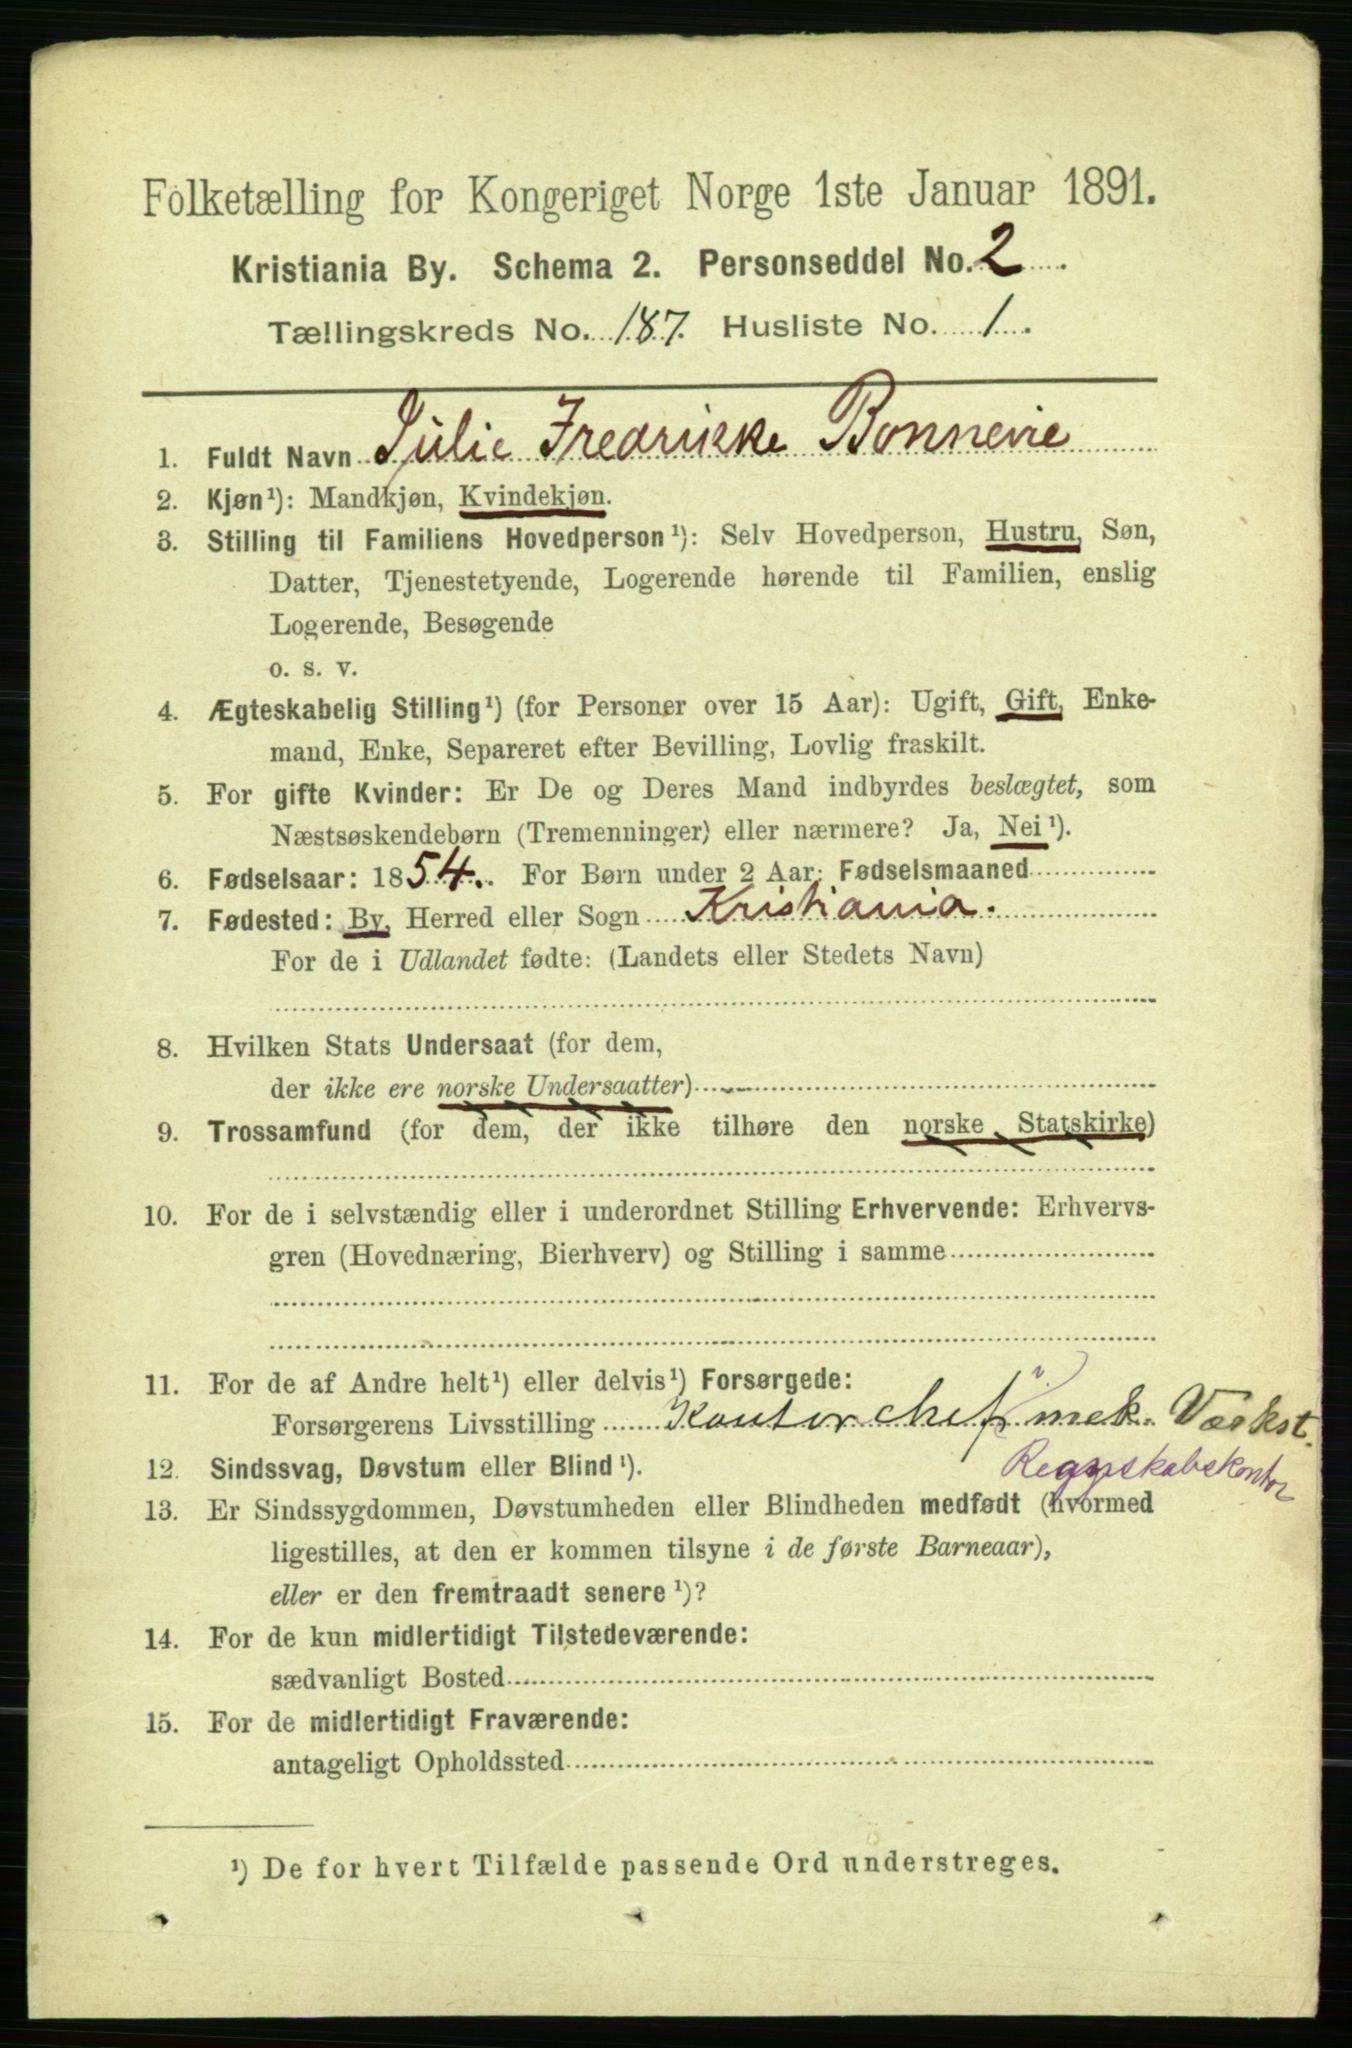 Folketælling for Kongeriget Norge 1ste Januar 1891.
Kristiania By. Schema 2. Personseddel No. 2
Tællingskreds No. 187. Husliste No. 1.
1. Fuldt Navn Julie Fredrikke Bonnevie
2. Kjøn¹): Mandkjøn, Kvindekjøn.
3. Stilling til Familiens Hovedperson¹): Selv Hovedperson, Hustru, Søn,
Datter, Tjenestetyende, Logerende hørende til Familien, enslig
Logerende, Besøgende
o. s. v.
4. Ægteskabelig Stilling¹) (for Personer over 15 Aar): Ugift, Gift, Enke-
mand, Enke, Separeret efter Bevilling, Lovlig fraskilt.
5. For gifte Kvinder: Er De og Deres Mand indbyrdes beslægtet, som
Næstsøskendebørn (Tremenninger) eller nærmere? Ja, Nei¹).
6. Fødselsaar: 1854. For Børn under 2 Aar: Fødselsmaaned
7. Fødested: By, Herred eller Sogn Kristiania.
For de i Udlandet fødte: (Landets eller Stedets Navn)
8. Hvilken Stats Undersaat (for dem,
der ikke ere norske Undersaatter)
9. Trossamfund (for dem, der ikke tilhøre den norske Statskirke)
10. For de i selvstændig eller i underordnet Stilling Erhvervende: Erhvervs-
gren (Hovednæring, Bierhverv) og Stilling i samme
11. For de af Andre helt¹) eller delvis¹) Forsørgede:
Forsørgerens Livsstilling Kontorchef mek. Værkst.
Regnskabskontor
12. Sindssvag, Døvstum eller Blind¹).
13. Er Sindssygdommen, Døvstumheden eller Blindheden medfødt (hvormed
ligestilles, at den er kommen tilsyne i de første Barneaar),
eller er den fremtraadt senere¹)?
14. For de kun midlertidigt Tilstedeværende:
sædvanligt Bosted
15. For de midlertidigt Fraværende:
antageligt Opholdssted
¹) De for hvert Tilfælde passende Ord understreges.